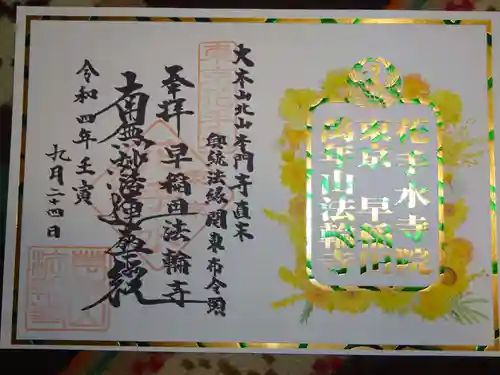 花手水寺院
東京 早稲田
萬年山法輪寺
大本山北山本門寺直末
興統法縁関東布令頭
奉拝 早稲田法輪寺
南無妙法蓮華経
令和四年壬寅
九月二十四日